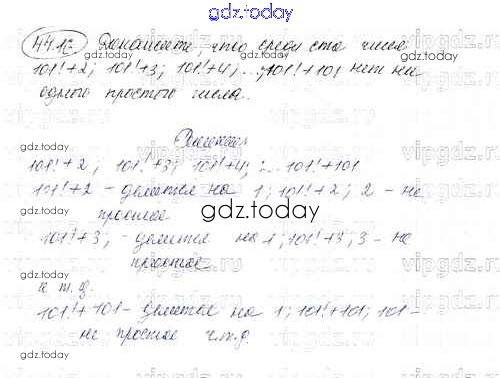 gdz.today
44.12 Докажите, что среди ста чисел
101!+2; 101!+3; 101!+4; ...; 101!+101 нет ни
одного простого числа.
gdz.today
Решение
101!+2; 101!+3; 101!+4; ... 101!+101
101!+2 - делится на 1; 101!+2; 2 - не
простое
gdz.today
101!+3; - делится на 1; 101!+3; 3 - не
простое.
и т.д.
101!+101 - делится на 1; 101!+101; 101 -
не простое ч.т.д.
gdz.today
gdz.today